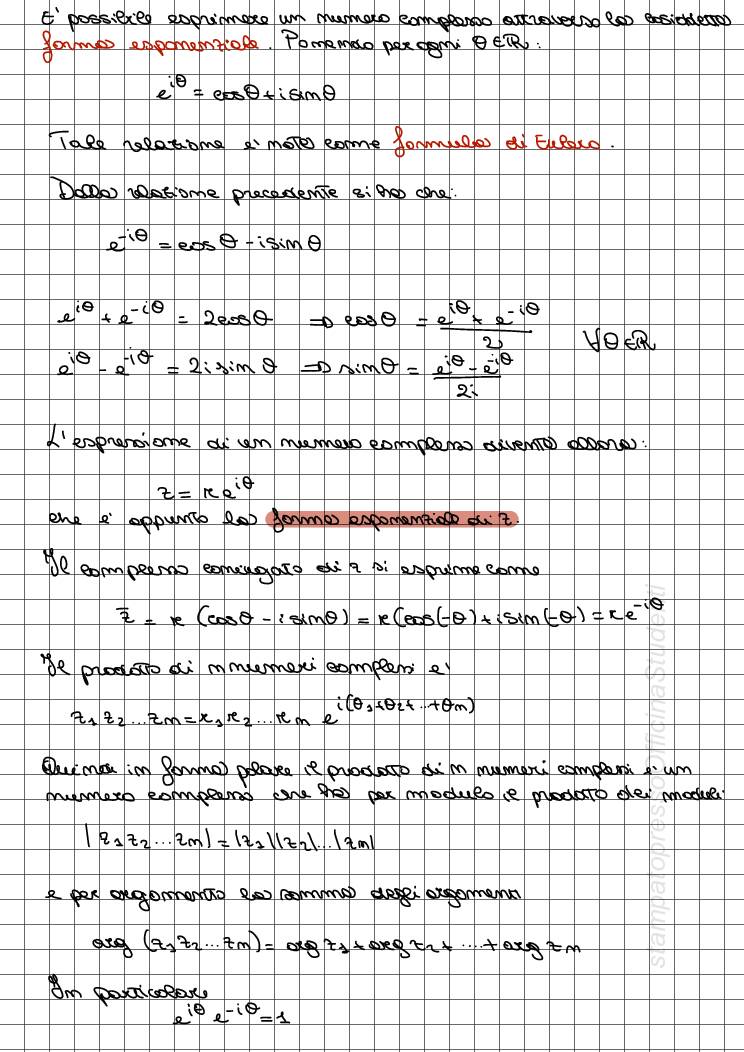 E' possibile esprimere un numero complesso attraverso la cosiddetta
forma esponenziale. Ponendo per ogni θ∈ℝ:
e^{iθ} = cosθ + i sinθ
Tale relazione e' nota come formula di Eulero.
Dalla relazione precedente si ha che:
e^{-iθ} = cos θ - i sin θ
e^{iθ} + e^{-iθ} = 2cosθ ⇒ cosθ = (e^{iθ} + e^{-iθ})/2
∀θ∈ℝ
e^{iθ} - e^{-iθ} = 2i sin θ ⇒ sinθ = (e^{iθ} - e^{-iθ})/2i
L'espressione di un numero complesso diventa allora:
z = r e^{iθ}
che e' appunto la forma esponenziale di z.
Il complesso coniugato di z si esprime come
z̅ = r (cosθ - i sinθ) = r(cos(-θ) + i sin(-θ)) = r e^{-iθ}
Il prodotto di n numeri complessi e'
z₁ z₂ ... zn = r₁ r₂ ... rn e^{i(θ₁+θ₂+...+θn)}
Quindi in forma polare il prodotto di n numeri complessi e' un
numero complesso che ha per modulo il prodotto dei moduli
|z₁ z₂ ... zn| = |z₁||z₂|...|zn|
e per argomento la somma degli argomenti
arg (z₁ z₂ ... zn) = arg z₁ + arg z₂ + ... + arg zn
In particolare
e^{iθ} e^{-iθ} = 1
stampatopressoOfficinaStudenti